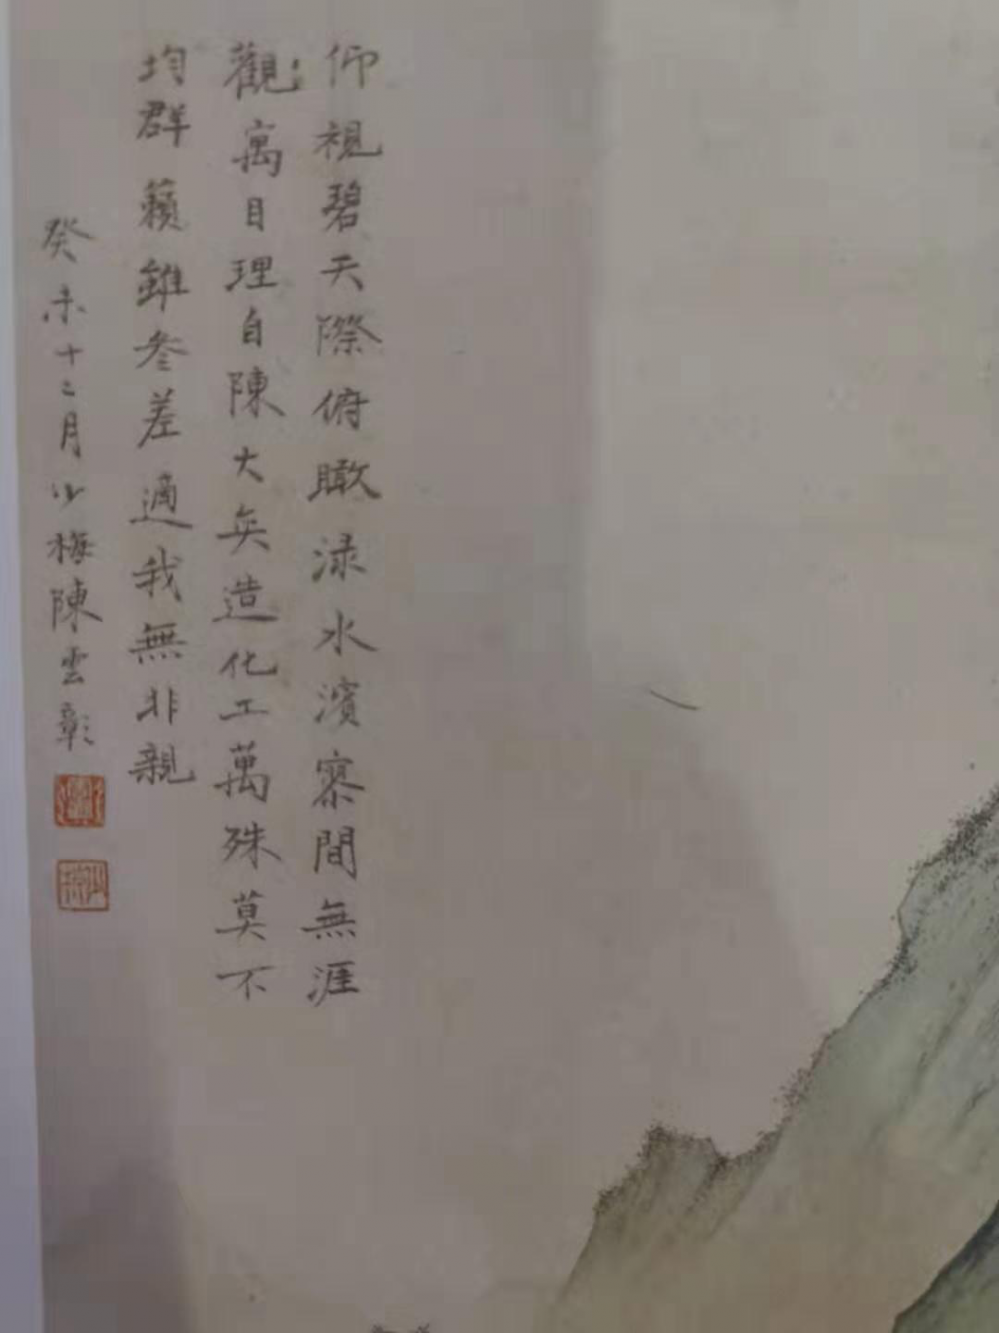 仰視碧天際俯瞰渌水濱寥閴無涯
觀寓目理自陳大矣造化工萬殊莫不
均群籟雖參差適我無非親
癸未十二月少梅陳雲彰